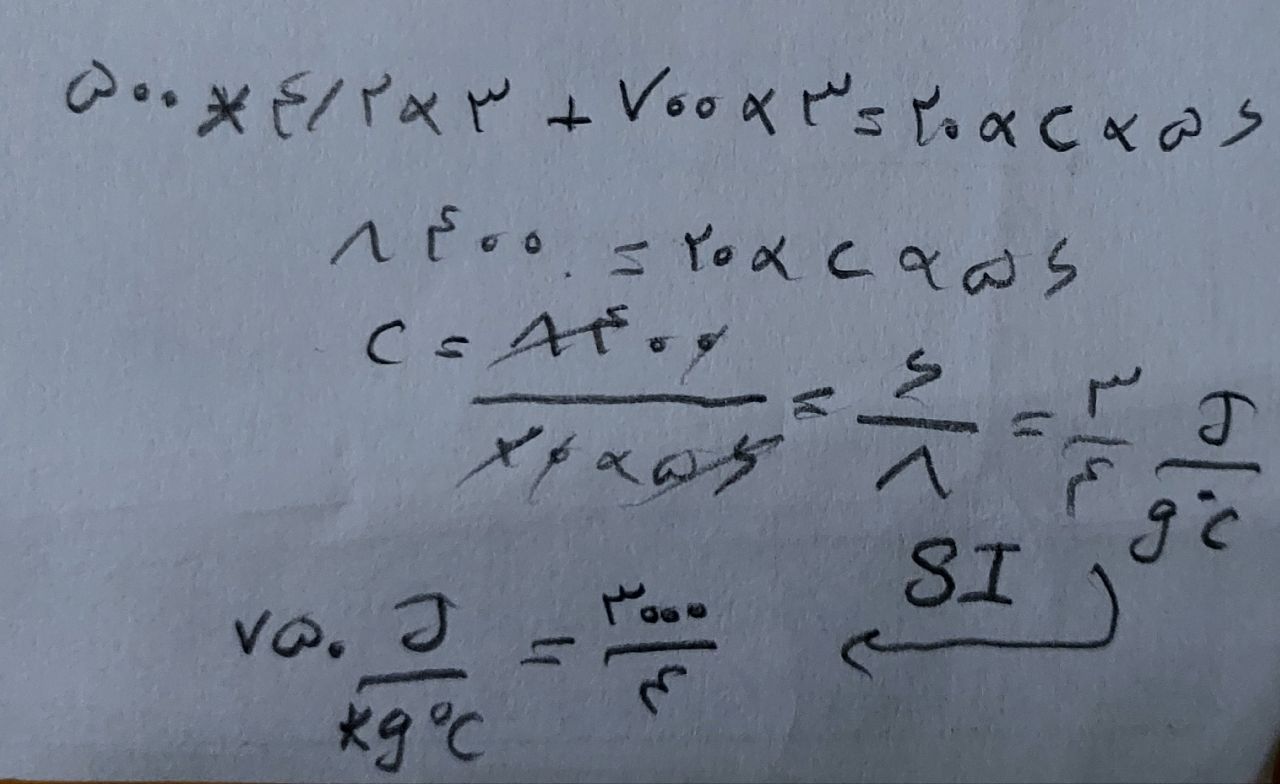 ۵۰۰ × ۴/۲ × ۳ + ۷۰۰ × ۳ = ۲۰ × C × ۵۶
۸۴۰۰ = ۲۰ × C × ۵۶
C = ۸۴۰۰ / ۲۰ × ۵۶ = ۶ / ۸ = ۳ / ۴ J / g°C
SI
۷۵۰ J / kg°C = ۳۰۰۰ / ۴